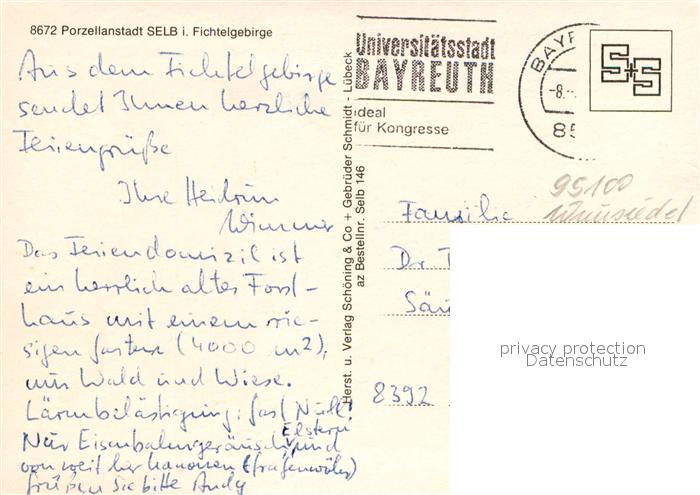 8672 Porzellanstadt SELB i. Fichtelgebirge
Aus dem Fichtelgebirge
sendet Ihnen herzliche
Feriengrüße
Ihre Heidrun
Wimmer
Das Feriendomizil ist
ein herrlich altes Forst-
haus mit einem rie-
sigen Garten (4000 m2),
nur Wald und Wiese.
Lärmbelästigung: fast Null!
Nur Eisenbahngeräusch, Elstern und
von weit her Kanonen (Grafenwöhr)
Grüßen Sie bitte Andy
Herst. u. Verlag Schöning & Co + Gebrüder Schmidt - Lübeck
az Bestellnr. Selb 146
Universitätsstadt
BAYREUTH
ideal
für Kongresse
BAYR
-8.
85
95100
Wunsiedel
Familie
Dr.
Säu
8392
privacy protection
Datenschutz